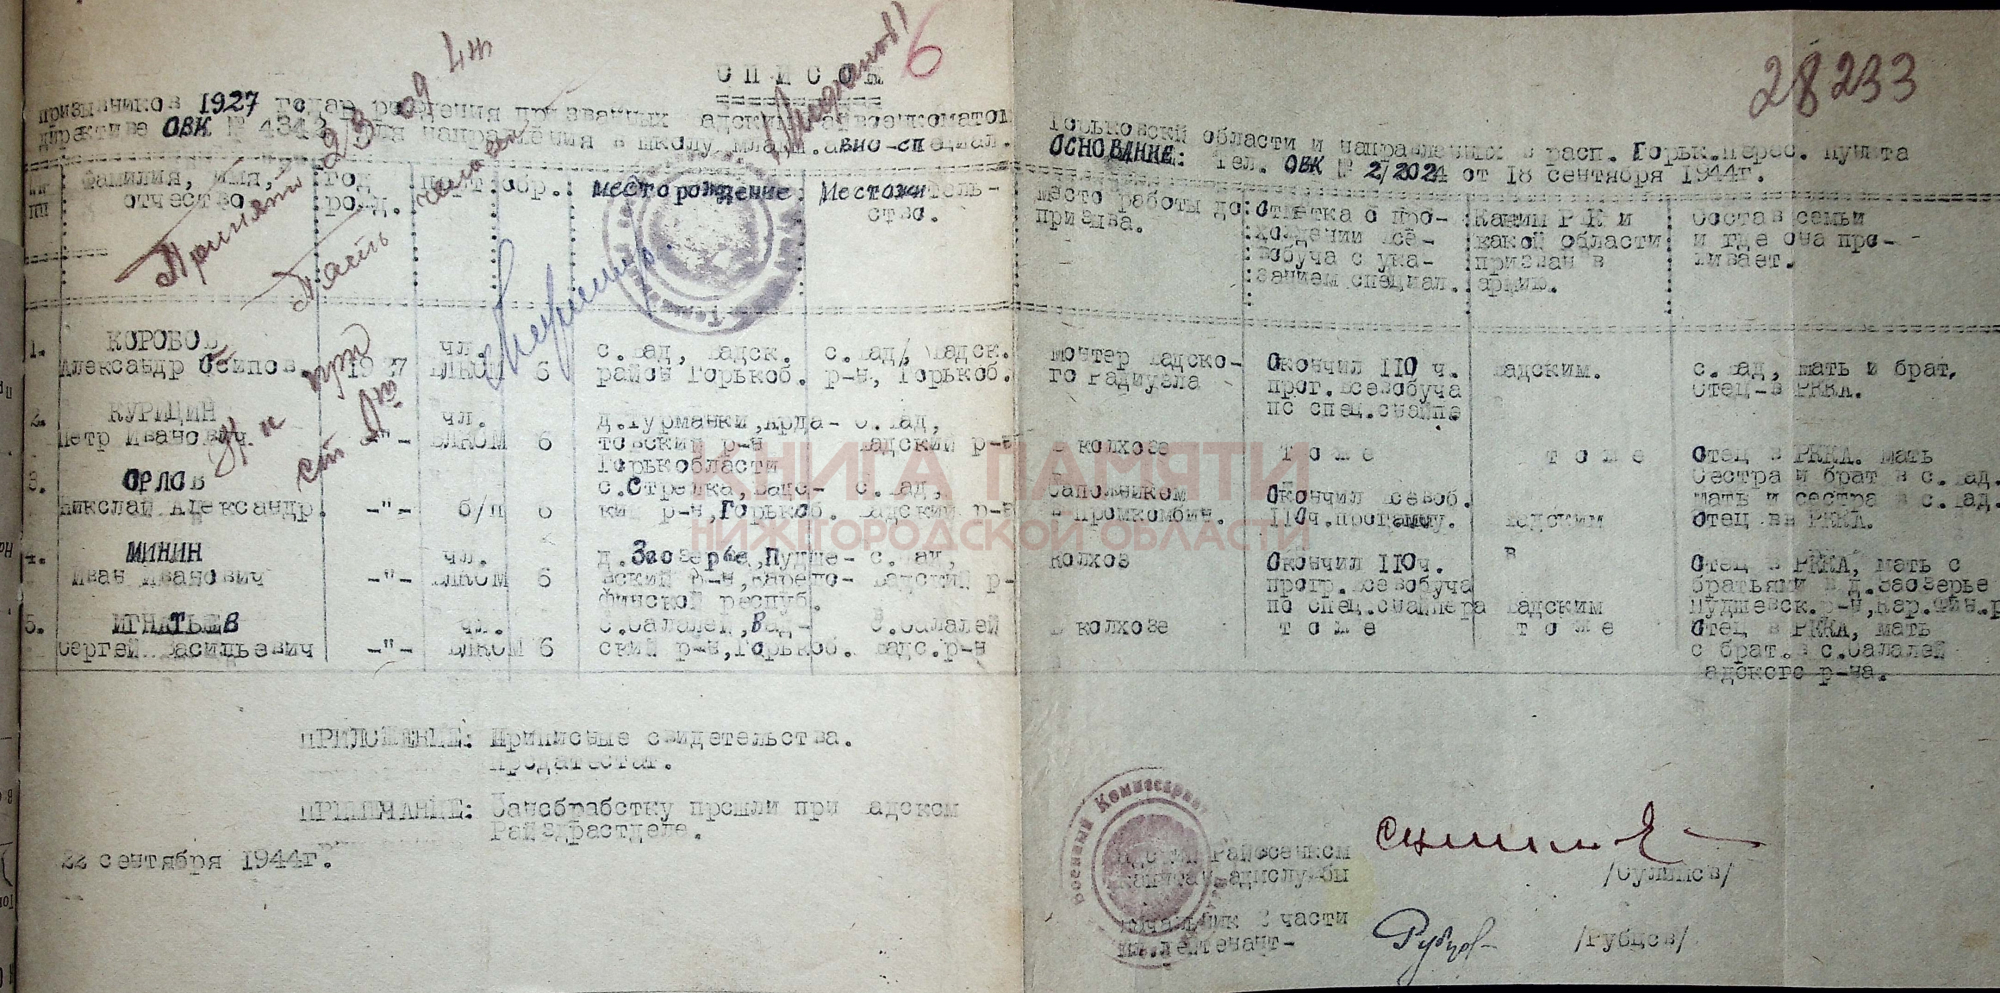 6
28233
С П И С О К
призывников 1927 года рождения призванных Вадским Райвоенкоматом Горьковской области и направленных в расп. Горьк.перес. пункта
директиве ОВК № 4342 для направления в школу младш.авио-специал. ОСНОВАНИЕ: Тел. ОВК № 2/2024 от 18 сентября 1944г.
Принято 23 09 44
Часть
Фамилия, имя, отчество
год рожд.
парт.
обр.
место рождение
Местожительство.
место работы до призыва.
Отметка о прохождении всевобуча с указанием специал.
Каким РВК и какой области призван в армию.
Состав семьи и где она проживает.
1. КОРОБОВ
Александр Осипов. 1927 чл. ВЛКСМ 6
с.Вад, Вадск. район Горькоб.
с.Вад, Вадск. р-н, Горькоб.
монтер Вадского Радиузла
Окончил 110 ч. прог.всевобуча по спец.снайпе
Вадским.
с.Вад, мать и брат, Отец-в РККА.
2. КУРИЦИН
Петр Иванович. -"- чл. ВЛКСМ 6
д.Гурманки,Ардатовский р-н Горькобласти
с.Вад, Вадский р-н
В колхозе
т о ж е
т о ж е
Отец в РККА. мать Сестра и брат в с.Вад.
3. ОРЛОВ
Николай Александр. -"- б/п 6
с.Стрелка,Вадский р-н,Горькоб.
с.Вад, Вадский р-н
Сапожником в Промкомбин.
Окончил Всевоб. 110ч.програму.
Вадским
мать и сестра в с.Вад. Отец в РККА.
4. МИНИН
Иван Иванович -"- чл. ВЛКСМ 6
д.Заозерье,Пудшевский р-н,Карело-финской респуб.
с.Вад, Вадский р-
Колхоз
Окончил 110ч. прогр.всевобуча по спец.снайпера
Вадским
Отец в РККА, мать с братьями в д.Заозерье Пудшевск.р-н,Кар.Фин.р
5. ИГНАТЬЕВ
Сергей Васильевич -"- чл. ВЛКСМ 6
с.Салалей,Вадский р-н,Горькоб.
В.Салалей Вадс.р-н
В колхозе
т о ж е
т о ж е
Отец в РККА, мать с брат.в с.Салалей Вадского р-на.
КНИГА ПАМЯТИ
НИЖЕГОРОДСКОЙ ОБЛАСТИ
ПРИЛОЖЕНИЕ: Приписные свидетельства.
продатестат.
ПРИМЕЧАНИЕ: Санобработку прошли при Вадском
Райздравотделе.
22 сентября 1944г.
Военный Комиссариат
/Сулимов/
Начальник 2 части
мл.лейтенант- Рубцов /Рубцов/